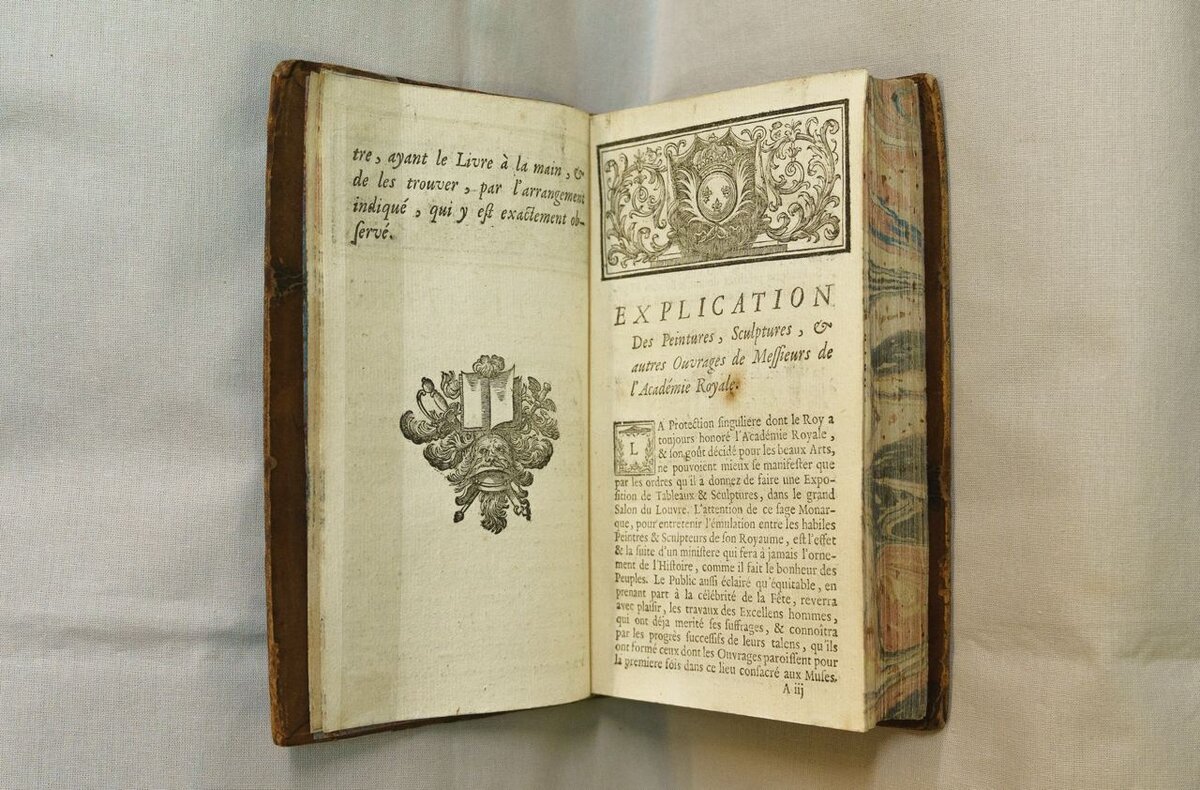 tre, ayant le Livre à la main, &
de les trouver, par l'arrangement
indiqué, qui y eſt exactement ob-
ſervé.
EXPLICATION
Des Peintures, Sculptures, &
autres Ouvrages de Meſſieurs de
l'Académie Royale.
LA Protection ſinguliere dont le Roy a
toujours honoré l'Académie Royale,
& ſon goût décidé pour les beaux Arts,
ne pouvoient mieux ſe manifeſter que
par les ordres qu'il a donnez de faire une Expo-
ſition de Tableaux & Sculptures, dans le grand
Salon du Louvre. L'attention de ce ſage Monar-
que, pour entretenir l'émulation entre les habiles
Peintres & Sculpteurs de ſon Royaume, eſt l'effet
& la ſuite d'un miniſtere qui fera à jamais l'orne-
ment de l'Hiſtoire, comme il fait le bonheur des
Peuples. Le Public auſſi éclairé qu'équitable, en
prenant part à la célébrité de la Fête, reverra
avec plaiſir, les travaux des Excellens hommes,
qui ont déja merité ſes ſuffrages, & connoîtra
par les progrès ſucceſſifs de leurs talens, qu'ils
ont formé ceux dont les Ouvrages paroiſſent pour
la premiere fois dans ce lieu conſacré aux Muſes.
A iij